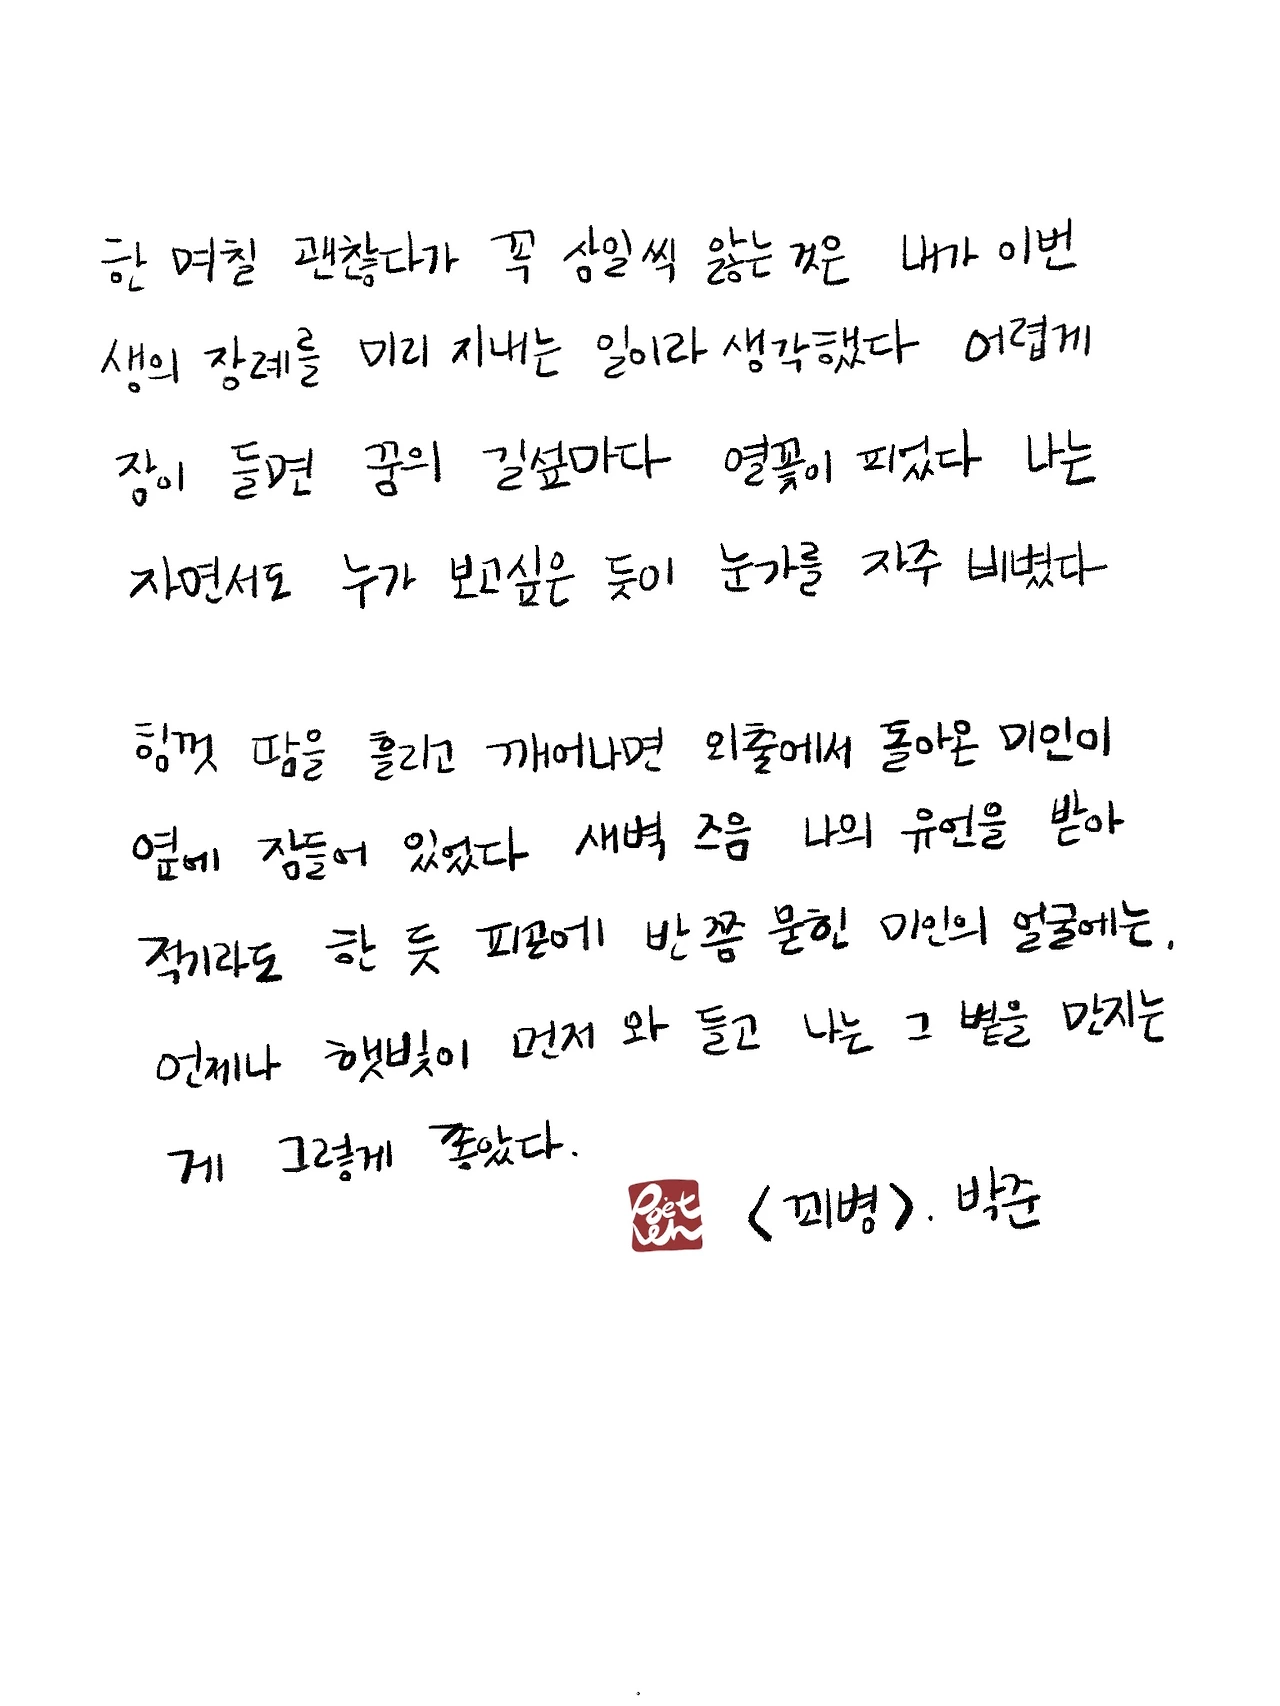 한 며칠 괜찮다가 꼭 삼일씩 앓는 것은 내가 이번
생의 장례를 미리 지내는 일이라 생각했다 어렵게
잠이 들면 꿈의 길섶마다 열꽃이 피었다 나는
자면서도 누가 보고싶은 듯이 눈가를 자주 비볐다
힘껏 땀을 흘리고 깨어나면 외출에서 돌아온 미인이
옆에 잠들어 있었다 새벽 즈음 나의 유언을 받아
적기라도 한 듯 피곤에 반쯤 묻힌 미인의 얼굴에는,
언제나 햇빛이 먼저 와 들고 나는 그 볕을 만지는
게 그렇게 좋았다.
Poet
〈꾀병〉. 박준